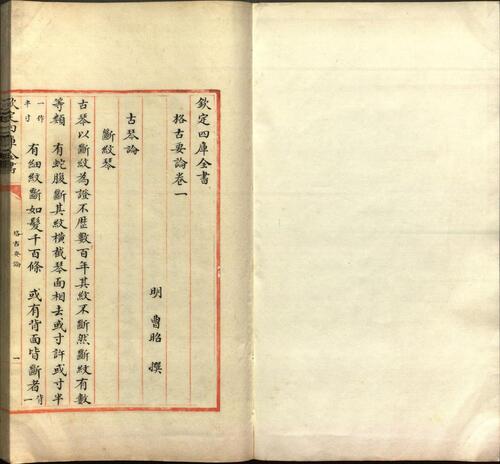 欽定四庫全書
格古要論卷一
明 曹昭 撰
古琴論
斷紋琴
古琴以斷紋為證不歷數百年其紋不斷然斷紋有數
等類 有蛇腹斷其紋橫截琴面相去或寸許或寸半
一作
半寸
有細紋斷如髮千百條 或有背面皆斷者
背
一
欽定四庫全書
格古要論
一